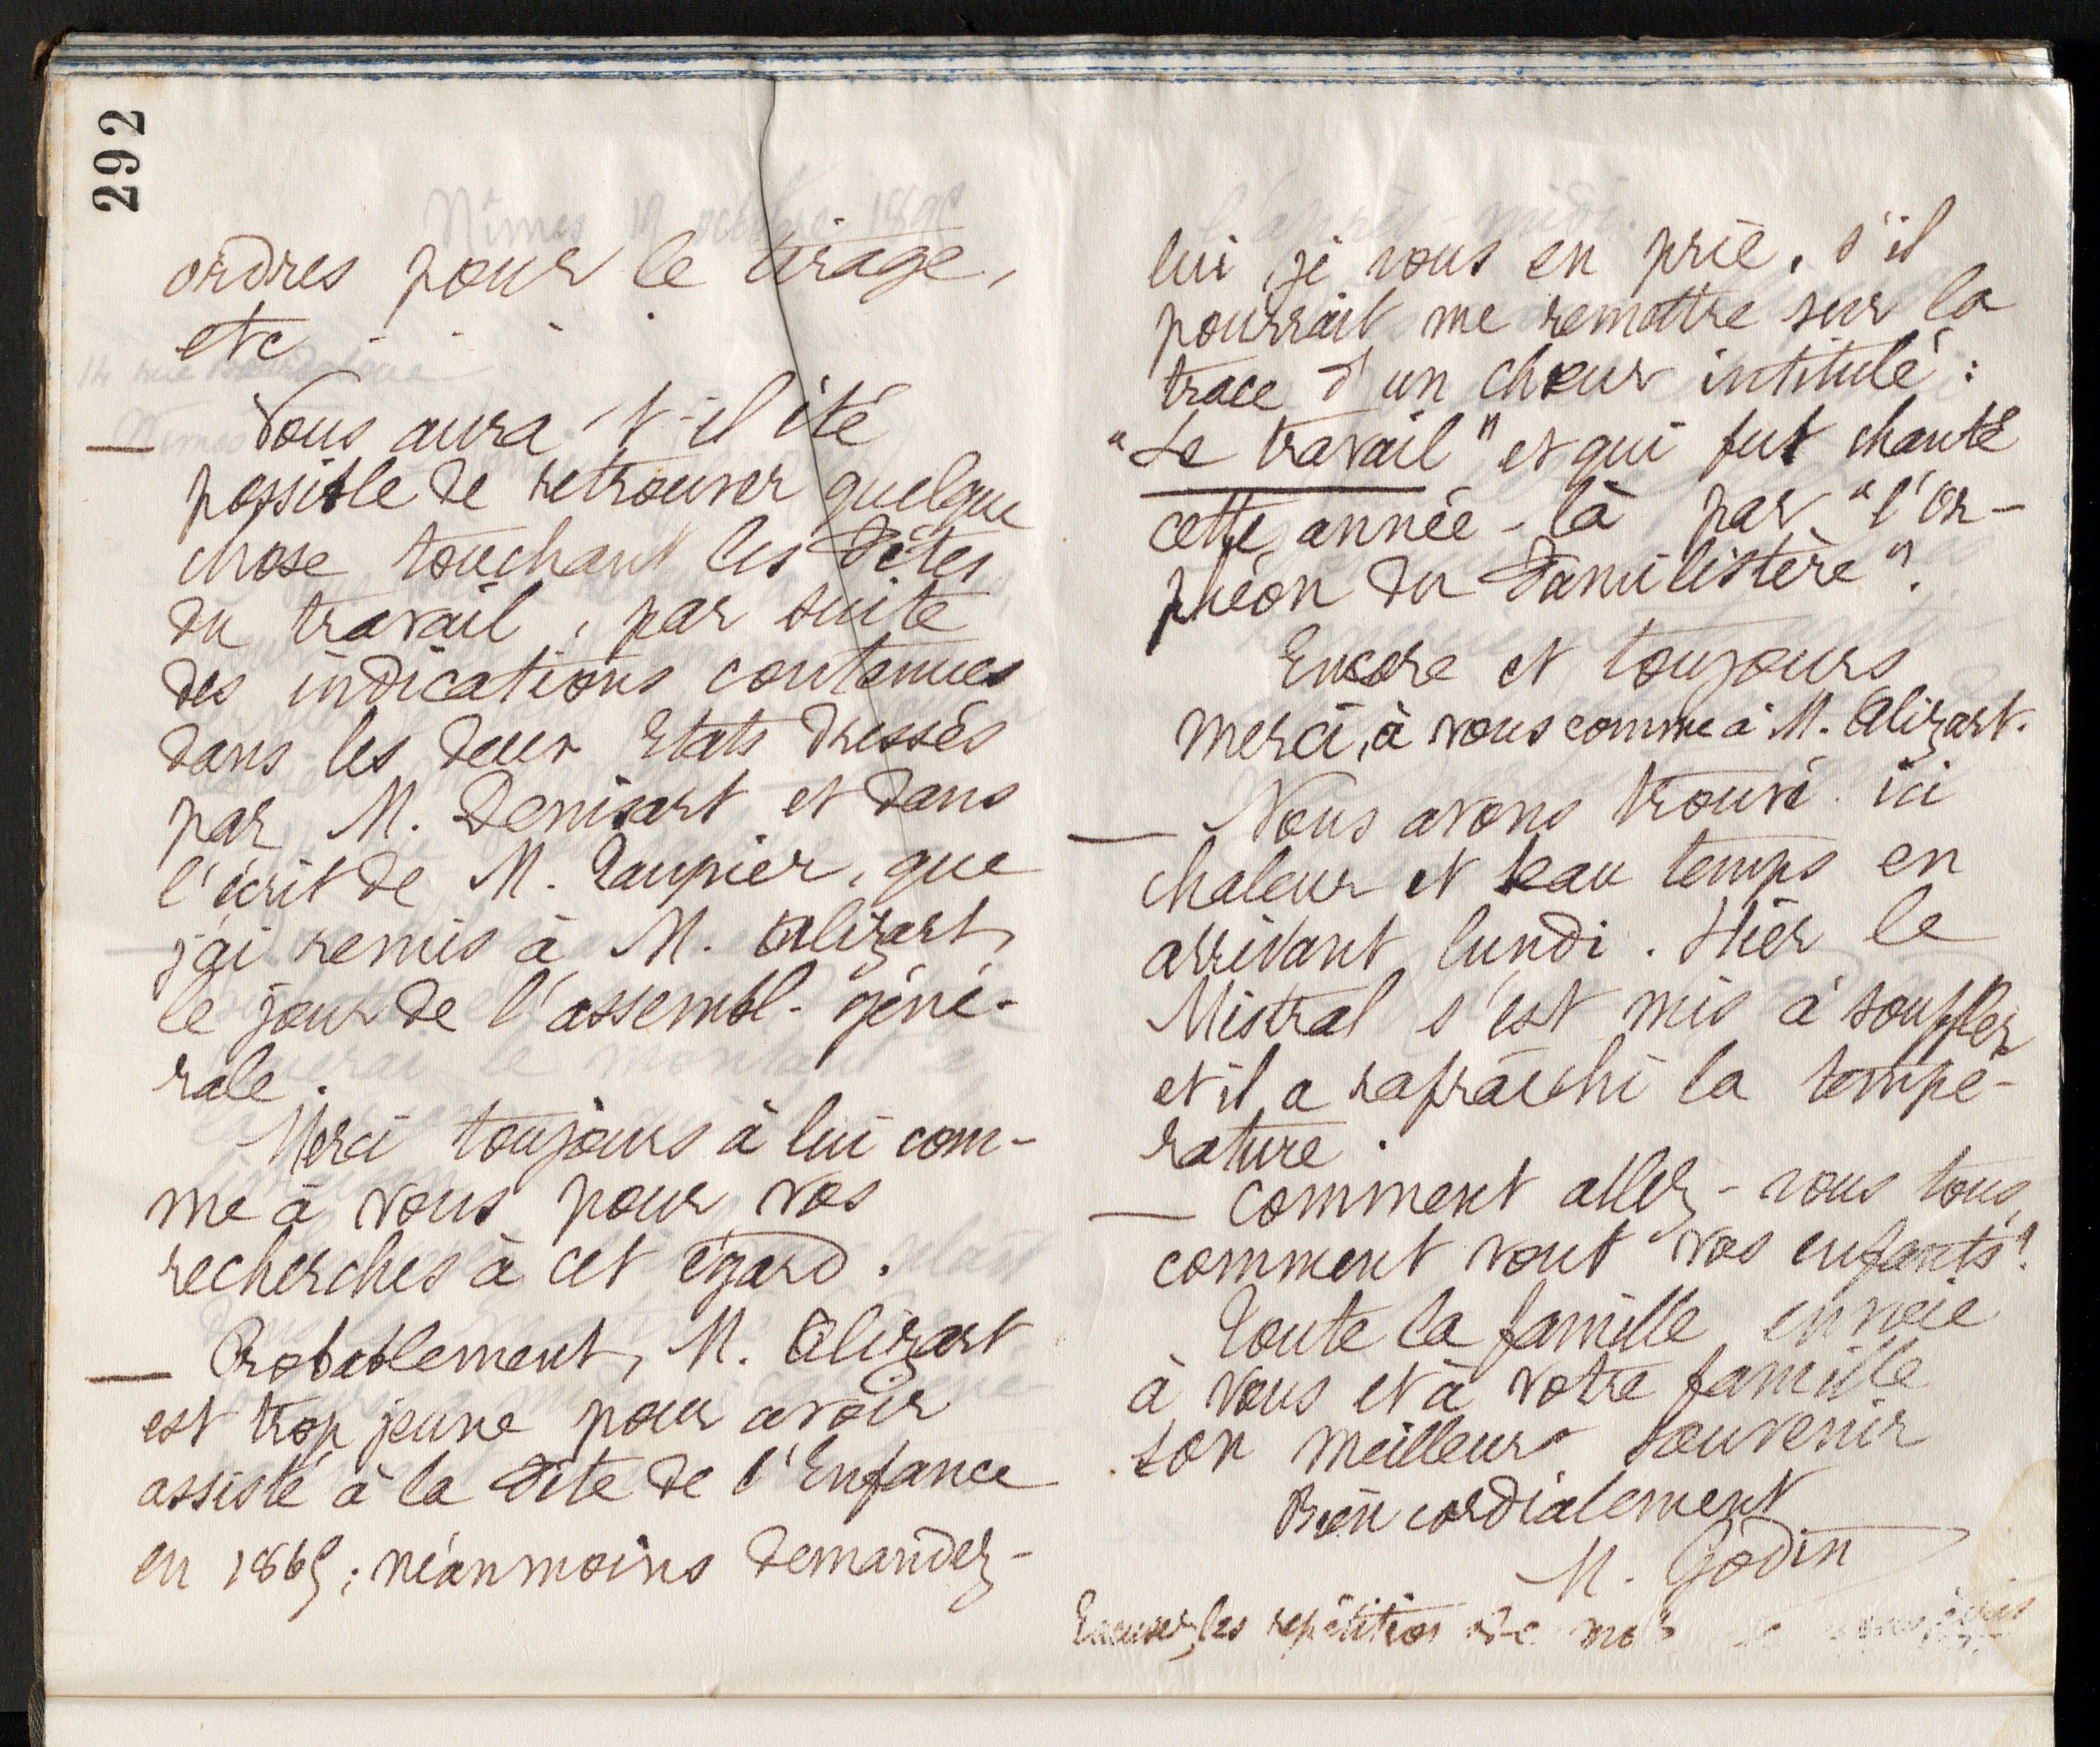 292
ordres pour le tirage,
etc . . . .
— Vous aura-t-il été
possible de retrouver quelque
chose touchant les Fêtes
du travail, par suite
des indications contenues
dans les deux Etats dressés
par M. Denisart et dans
l'écrit de M. Taupier, que
j'ai remis à M. Alizart
le jour de l'assembl. géné-
rale.
Merci toujours à lui com-
me à vous pour vos
recherches à cet égard.
— Probablement, M. Alizart
est trop jeune pour avoir
assisté à la Fête de l'Enfance
en 1865; néanmoins demandez-
lui, je vous en prie, s'il
pourrait me remettre sur la
trace d'un chœur intitulé :
"Le travail" et qui fut chanté
cette année-là par "l'Or-
phéon du Familistère".
Encore et toujours
merci, à vous comme à M. Alizart.
— Nous avons trouvé ici
chaleur et beau temps en
arrivant lundi. Hier le
Mistral s'est mis à souffler
et il a rafraîchi la tempé-
rature.
— Comment allez-vous tous,
comment vont vos enfants?
Toute la famille envoie
à vous et à votre famille
son meilleur souvenir
Bien cordialement
M. Godin
Excusez les répétitions de mots
Nîmes octobre 189
14 rue Bourdaloue
Nîmes
l'après-midi.